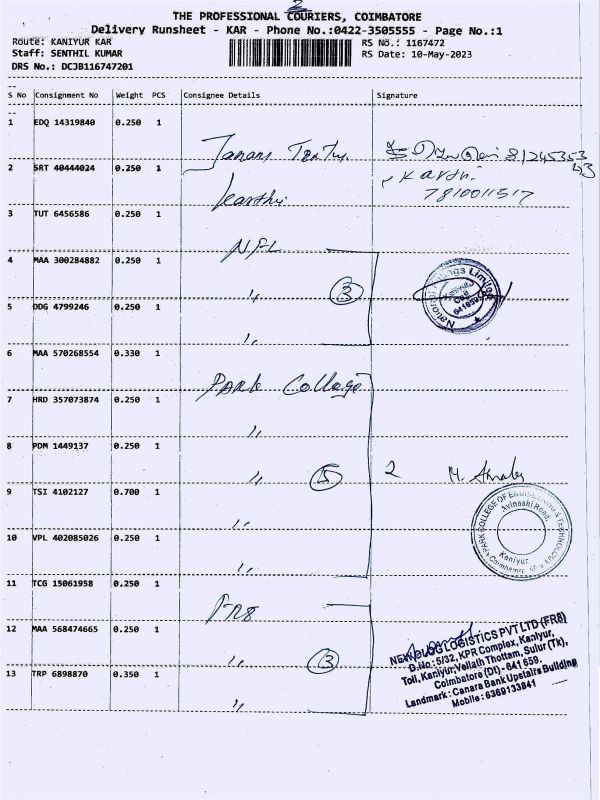 2
THE PROFESSIONAL COURIERS, COIMBATORE
Delivery Runsheet - KAR - Phone No.:0422-3505555 - Page No.:1
Route: KANIYUR KAR
RS No.: 1167472
Staff: SENTHIL KUMAR
RS Date: 10-May-2023
DRS No.: DCJB116747201
S No Consignment No Weight PCS Consignee Details Signature
1 EDQ 14319840 0.250 1
2 SRT 40444024 0.250 1
Karthi
7810011517
3 TUT 6456586 0.250 1
NFL
4 MAA 300284882 0.250 1
〃 3
National Limited
5 DDG 4799246 0.250 1
〃
6 MAA 570268554 0.330 1
PARK College
7 HRD 357073874 0.250 1
〃
8 PDM 1449137 0.250 1
〃 5 2
9 TSI 4102127 0.700 1
〃
PARK COLLEGE OF ENGINEERING & TECHNOLOGY
Avinashi Road,
Kaniyur
Coimbatore
10 VPL 402085026 0.250 1
〃
11 TCG 15061958 0.250 1
FR8
12 MAA 568474665 0.250 1
〃 3
LOGISTICS PVT LTD (FR8)
D.No: 5/32, KPR Complex, Kaniyur,
Toll, Kaniyur, Vellath Thottam, Sulur (Tk),
Coimbatore (Dt) - 641 659.
Landmark: Canara Bank Upstairs Building
Mobile: 6369133841
13 TRP 6898870 0.350 1
〃